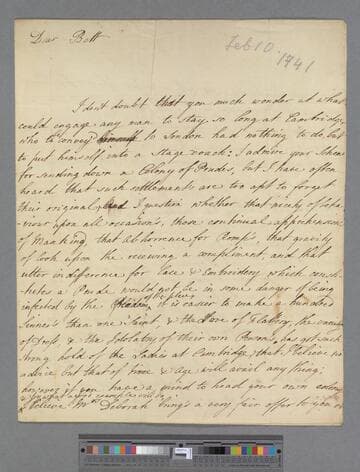 Dear Bett
Feb 10. 1741
I don't doubt that you much wonder at what
could engage any man to stay so long at Cambridge,
who to convey himself to London had nothing to do but
to put himself into a Stage coach: I admire your scheme
for sending down a Colony of Prudes, but I have often
heard that such settlements are too apt to forget
their original, and I question whether that nicety of beha-
viour upon all occasion's, those continual apprehensions
of Mankind that abhorrence for Romp's, that gravity
of look upon the receiving a compliment, and that
utter indifference for Lace & Embroidery which consti-
tutes a Prude would not be in some danger of being
infected by the of the place; it is easier to make a hundred
Sinners than one Saint, & the Love of Flattery, the
of Dress & the Idolatry of their own Persons, has got such
strong hold of the Ladies at Cambridge, that I believe no
advice but that of time & age will avail any thing:
however if you have a mind to head your own colony
I believe Mrs Deborah bring's a very fair offer to you